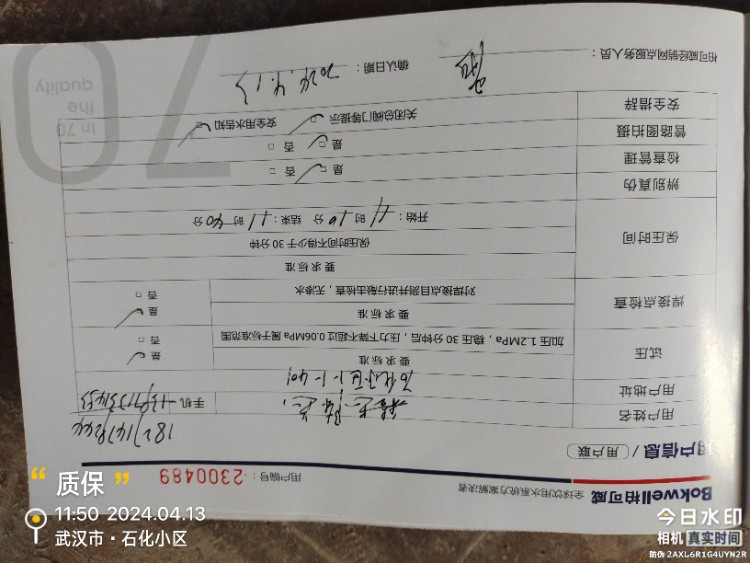 Bokwell柏可威 全球饮用水系统方案解决者
用户编号：2300489
用户信息 / 用户联
用户姓名
手机
用户地址 石化小区1-1-401
试压
要求标准
加压1.2MPa，稳压30分钟后，压力下降不超过0.06MPa属于标准范围
是 □
否 □
焊接点检查
要求标准
对焊接点目测并进行敲击检查，无渗水
是 □
否 □
保压时间
要求标准
保压时间不得少于30分钟
开始：11时10分 结束：11时40分
辨别真伪
检查管理 是 □ 否 □
管路图拍摄 是 □ 否 □
安全措辞 关闭总阀门等提示 □ 安全用水告知 □
柏可威经销网点服务人员：
确认日期：2024.4.13
In 70
the
quality
70
“质保”
11:50 2024.04.13
武汉市·石化小区
今日水印
相机 真实时间
防伪 2AXL6R1G4UYN2R